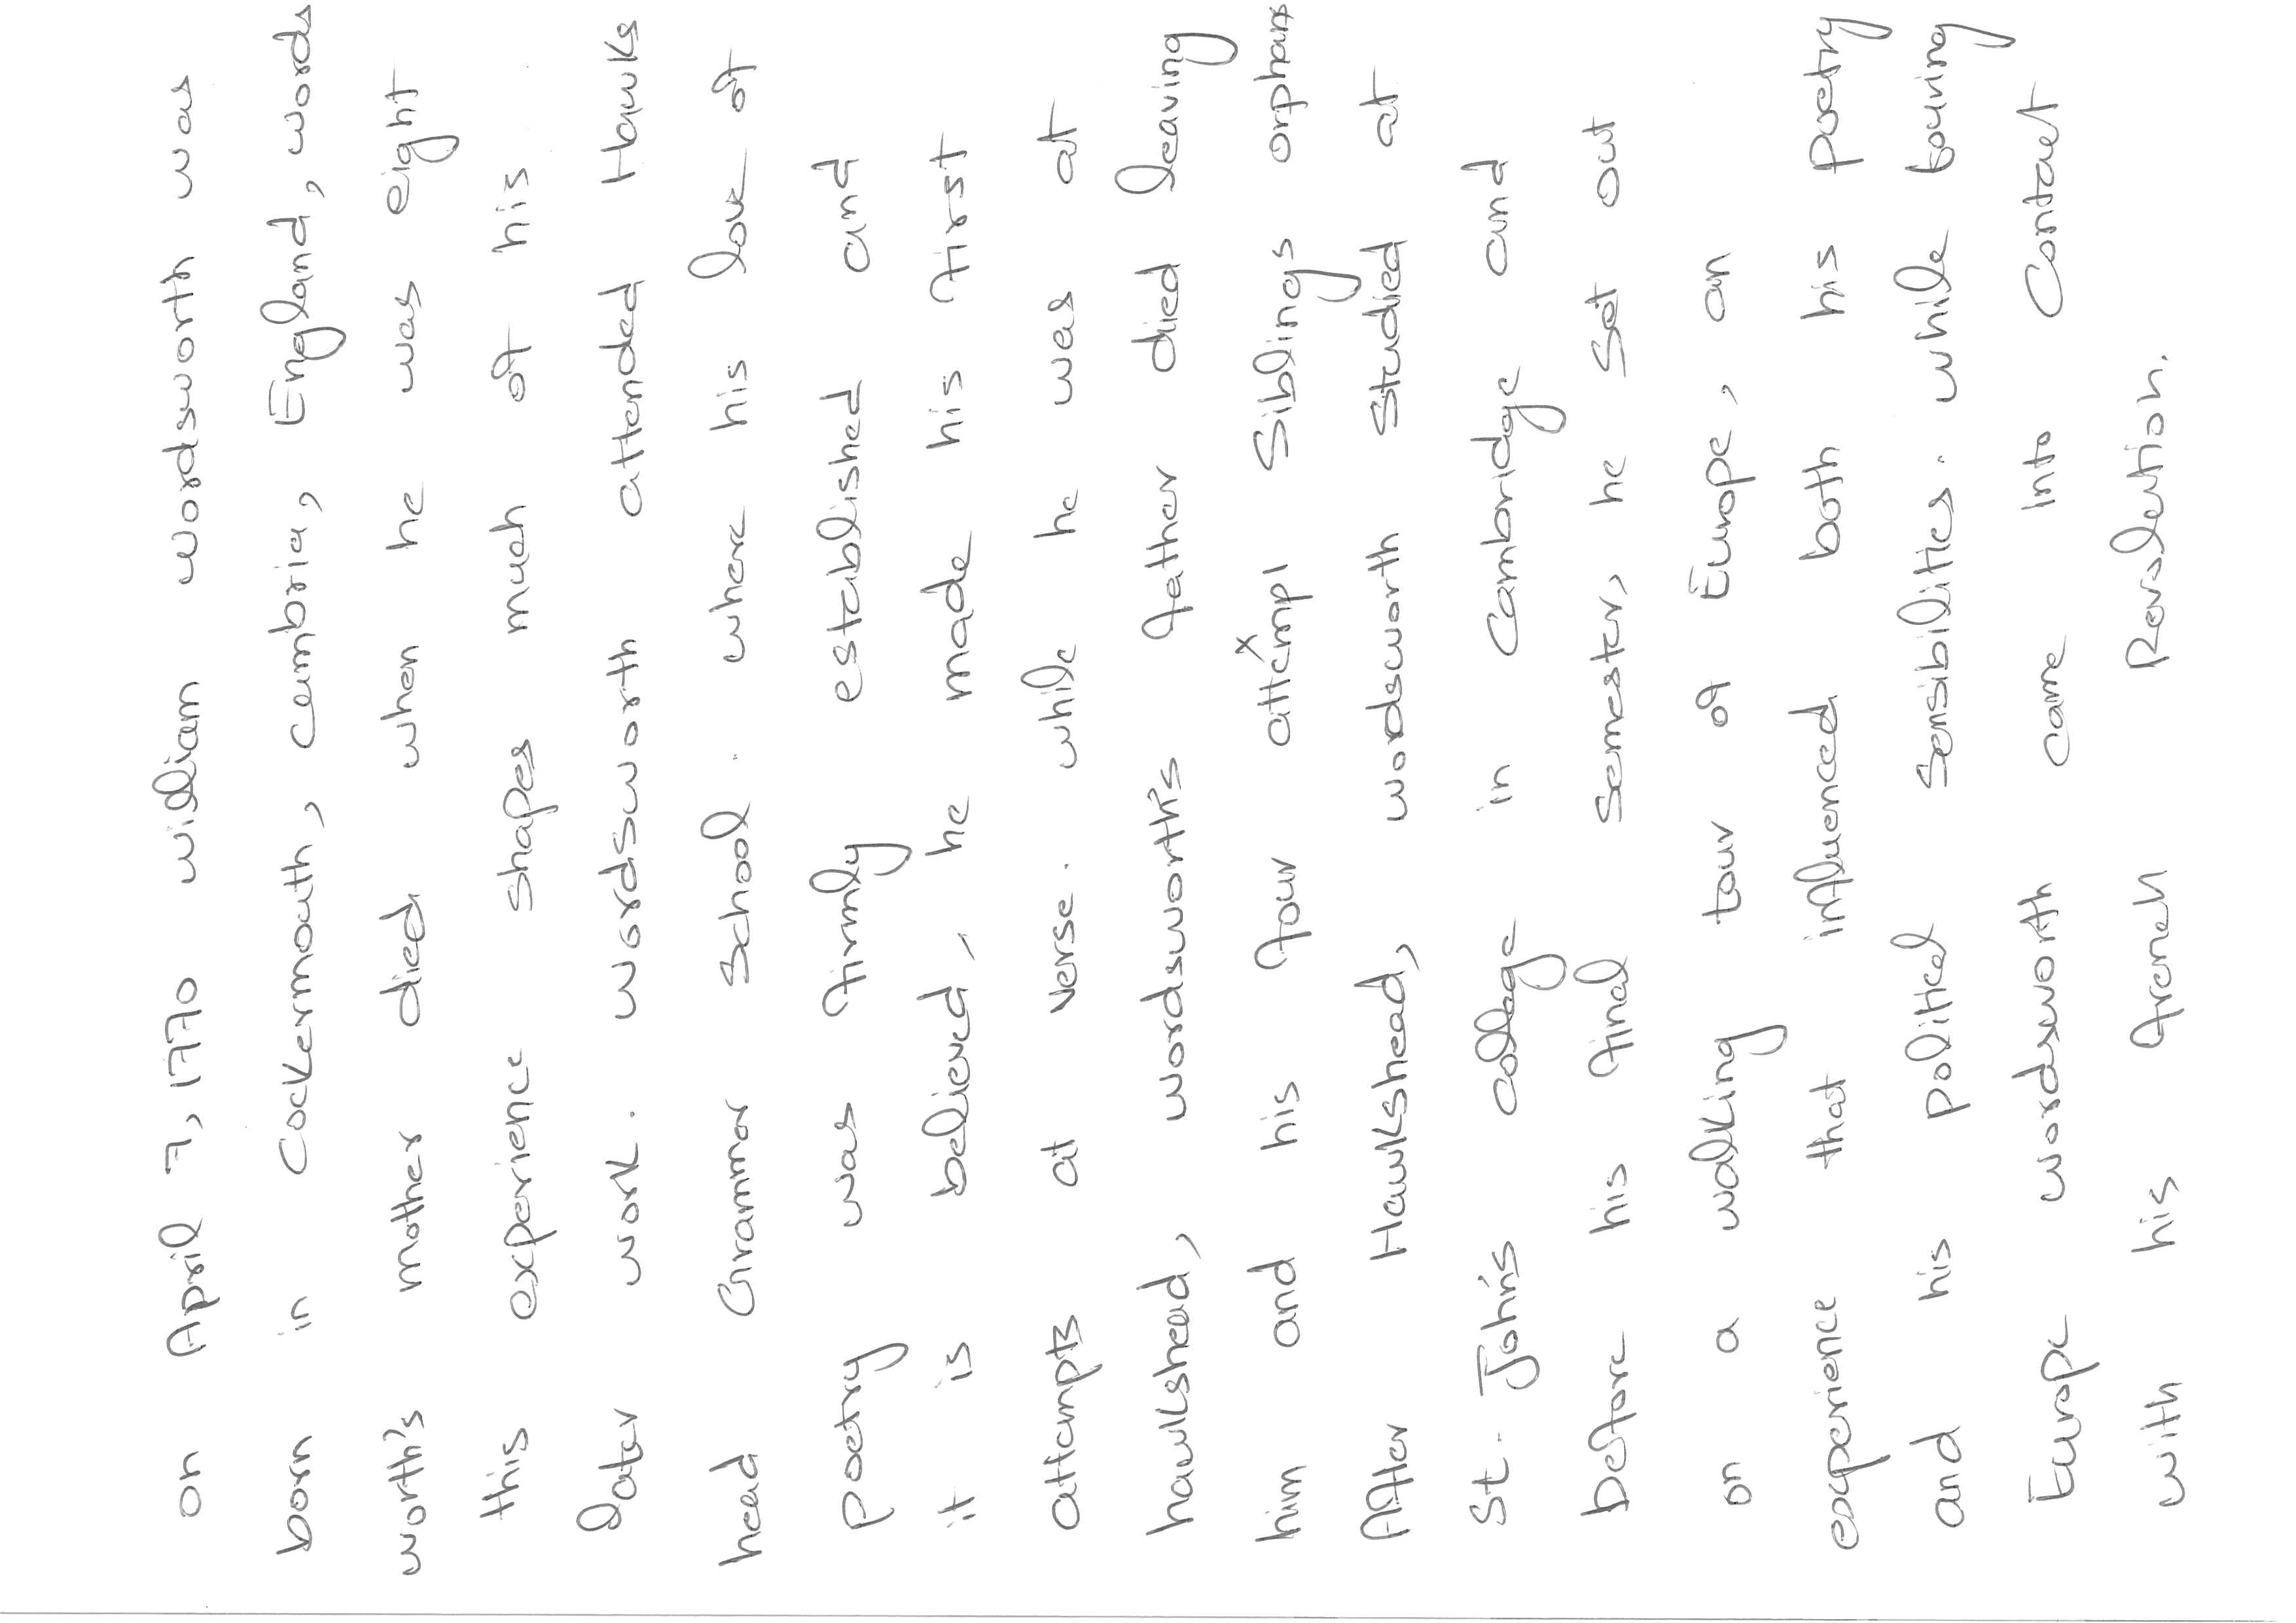 on April 7, 1770 william wordsworth was
born in Cockermouth, cumbria, England, words
worth's mother died when he was eight
this experience shapes much of his
later work. wordsworth attended Hawks
head Grammar School. where his love of
poetry was firmly established and
it is believed, he made his first
attempts at verse. while he was at
hawkshead, wordsworth's father died leaving
him and his four attempt Siblings orphans
After Hawkshead, wordsworth studied at
St. John's college in Cambridge and
before his final semester, he set out
on a walking tour of Europe, an
experience that influenced both his poetry
and his political sensibilities. while touring
Europe wordsworth came into Contact
with his french Revolution.